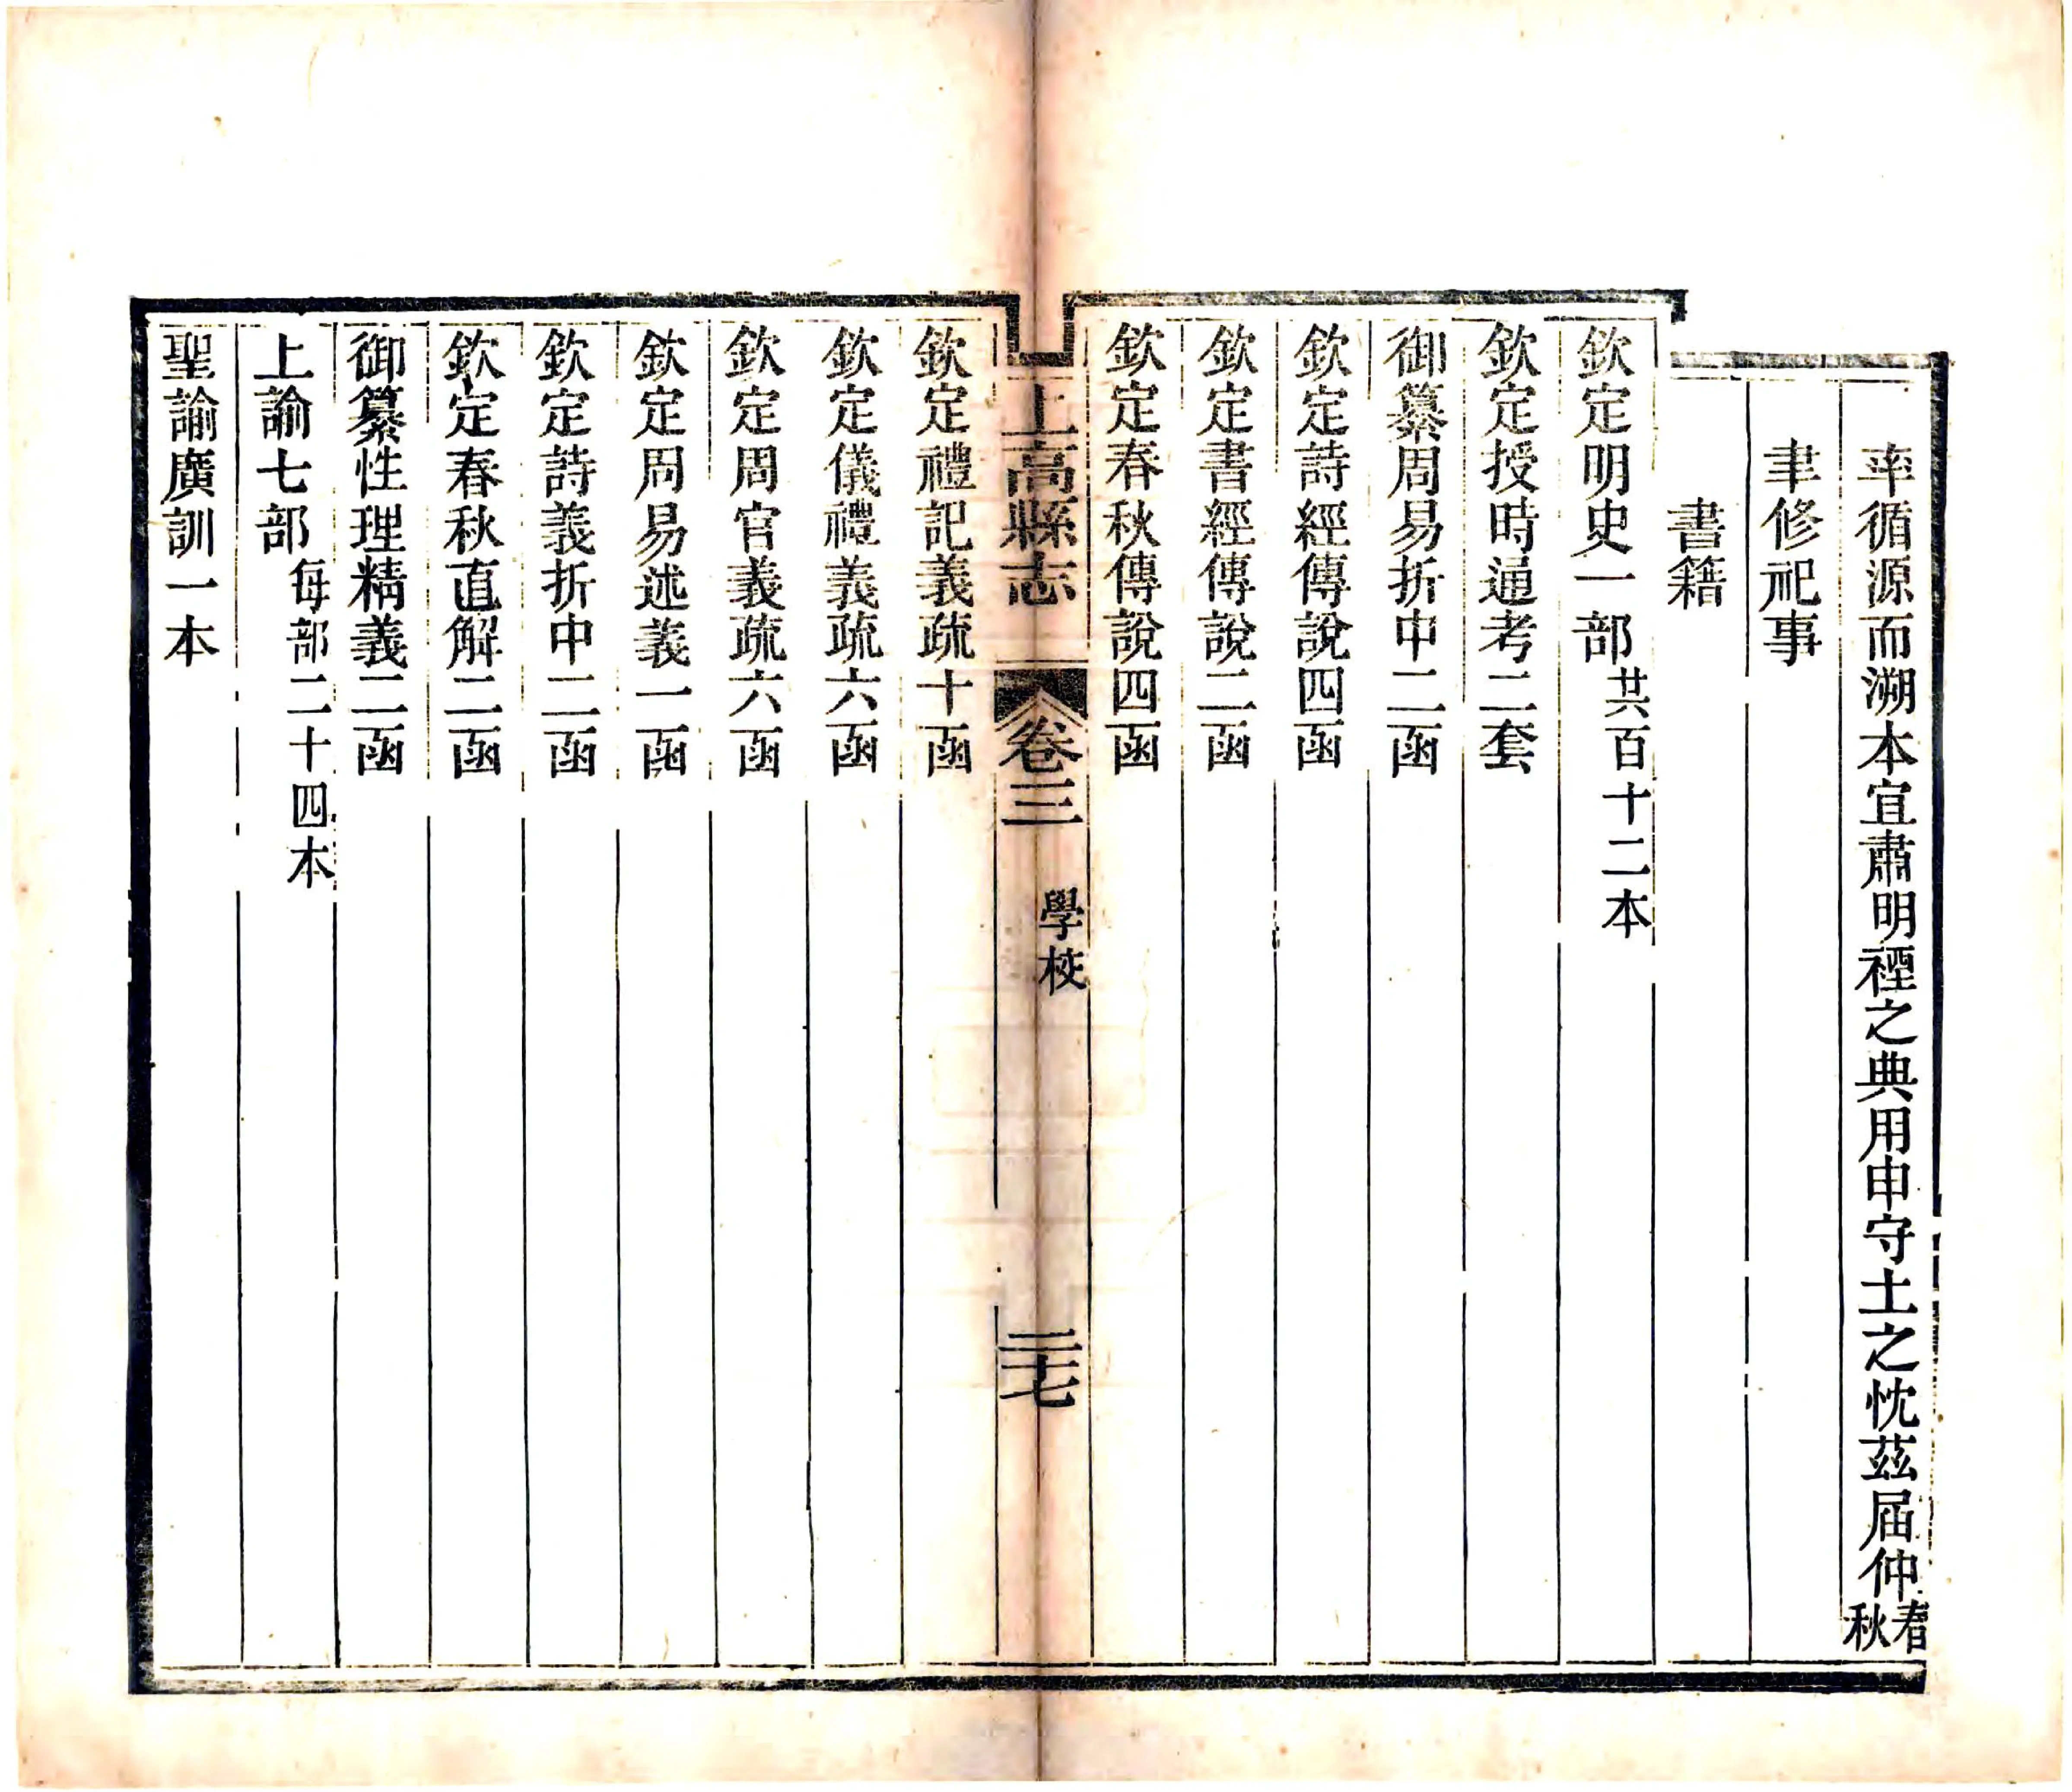 率循源而溯本宜肅明禋之典用申守土之忱茲届仲春秋
聿修祀事
書籍
欽定明史一部共百十二本
欽定授時通考二套
御纂周易折中二函
欽定詩經傳說四函
欽定書經傳說二函
欽定春秋傳說四函
上高縣志 卷三 學校 二十七
欽定禮記義疏十函
欽定儀禮義疏六函
欽定周官義疏六函
欽定周易述義一函
欽定詩義折中二函
欽定春秋直解二函
御纂性理精義二函
上諭七部每部二十四本
聖諭廣訓一本